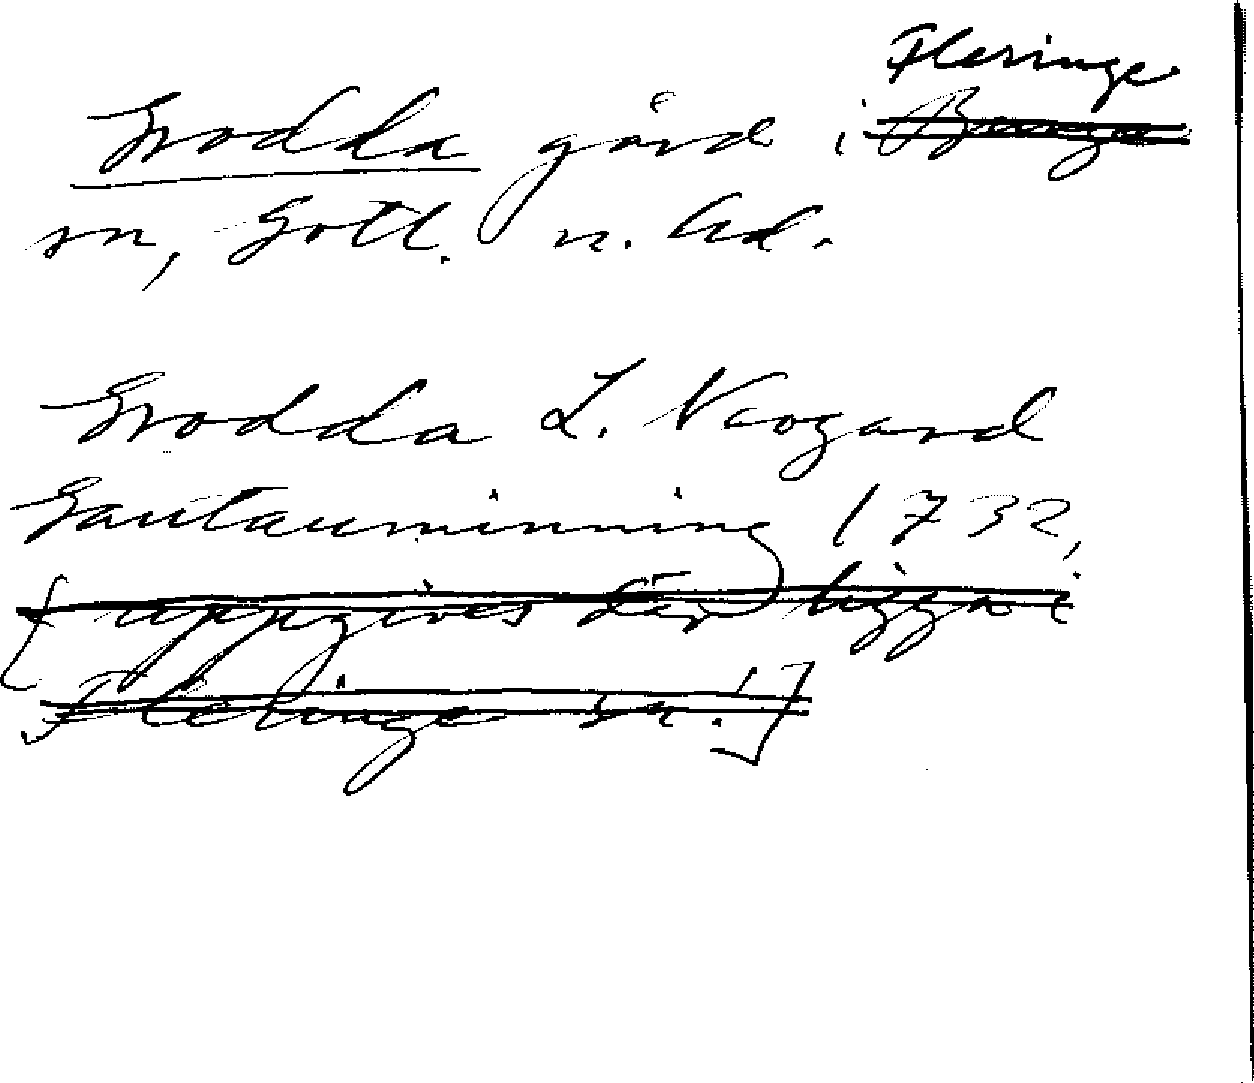 Fleringe
Grodda gård i Bunge
sn, Gotl. n. hd.
Grodda L. Neogard
Gautauminning 1732,
[uppgives där ligga i
Fleringe sn.!]